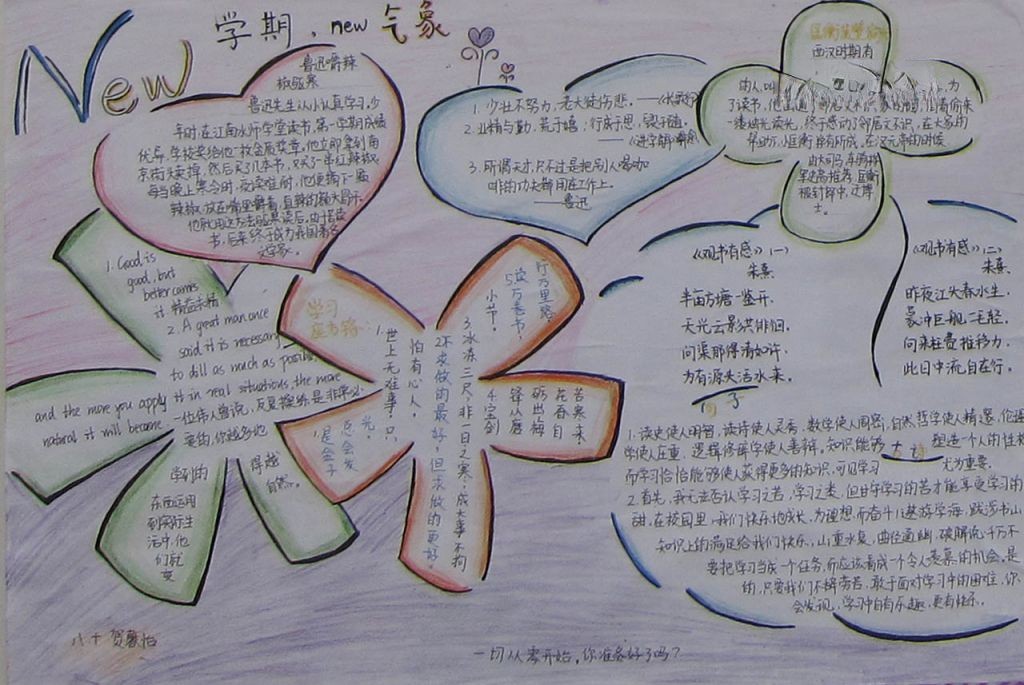 New 学期，new 气象
鲁迅嚼辣
椒驱寒
鲁迅先生从小认真学习。少
年时，在江南水师学堂读书，第一学期成绩
优异，学校奖给他一枚金质奖章。他立即拿到南
京街头卖掉，然后买了几本书，又买了一串红辣椒。
每当晚上寒冷时，夜读难耐，他便摘下一颗
辣椒，放在嘴里嚼着，直辣的额头冒汗。
他就用这种办法驱寒
书，后来终于成为我国著名
文学家。
1. 少壮不努力，老大徒伤悲。——《长歌行》
2. 业精于勤，荒于嬉；行成于思，毁于随。
——《进学解》
3. 哪有天才，只不过是把别人喝咖
啡的功夫都用在工作上。
——鲁迅
匡衡凿壁
西汉时期有
终于感动了邻居文不识，在大家的
帮助下，小匡衡
由大司马、车骑将
军史高推荐，匡衡
被封郎中，迁博
士。
《观书有感》（一）
朱熹
半亩方塘一鉴开，
天光云影共徘徊。
问渠那得清如许，
为有源头活水来。
《观书有感》（二）
朱熹
昨夜江头春水生，
蒙冲巨舰一毛轻。
向来枉费推移力，
此日中流自在行。
1. Good is
good, but
better carries
it 精益求精
2. A great man once
said it is necessary
to dill as much as possible
and the more you apply it in real situations, the more
natural it will become
一位伟人曾说，反复操练是非常必
要的，你越多地
将所学的
东西运用
到实际生
活中，他
们就变
得越
自然。
学习
座右铭：
1.世上无难事，只
怕有心人。
2.不求做的最好，但求做的更好。
3.冰冻三尺，非一日之寒；成大事不拘
小节。
4.宝剑
锋从磨
砺出，梅
花香自
苦寒来
5.读万卷书，
行万里路。
是金子
总会发
光。
1. 读史使人明智，读诗使人灵秀，数学使人周密，自然哲学使人精邃，伦理
学使人庄重，逻辑修辞学使人善辩。知识能够塑造一个人的性格
而学习恰恰能够使人获得更多的知识，可见学习尤为重要。
2. 首先，我无法否认学习之苦，学习之累，但甘于学习的苦才能享受学习的
甜，在校园里，我们快乐地成长，为理想而奋斗，遨游学海，跋涉书山
知识上的满足给我们快乐，山重水复，曲径通幽，破解
要把学习当成一个任务，而应该看成一个令人羡慕的机会。是
的，只要我们不辞劳苦，敢于面对学习中的困难，你
会发现，学习中自有乐趣，更有快乐。
一切从零开始，你准备好了吗？